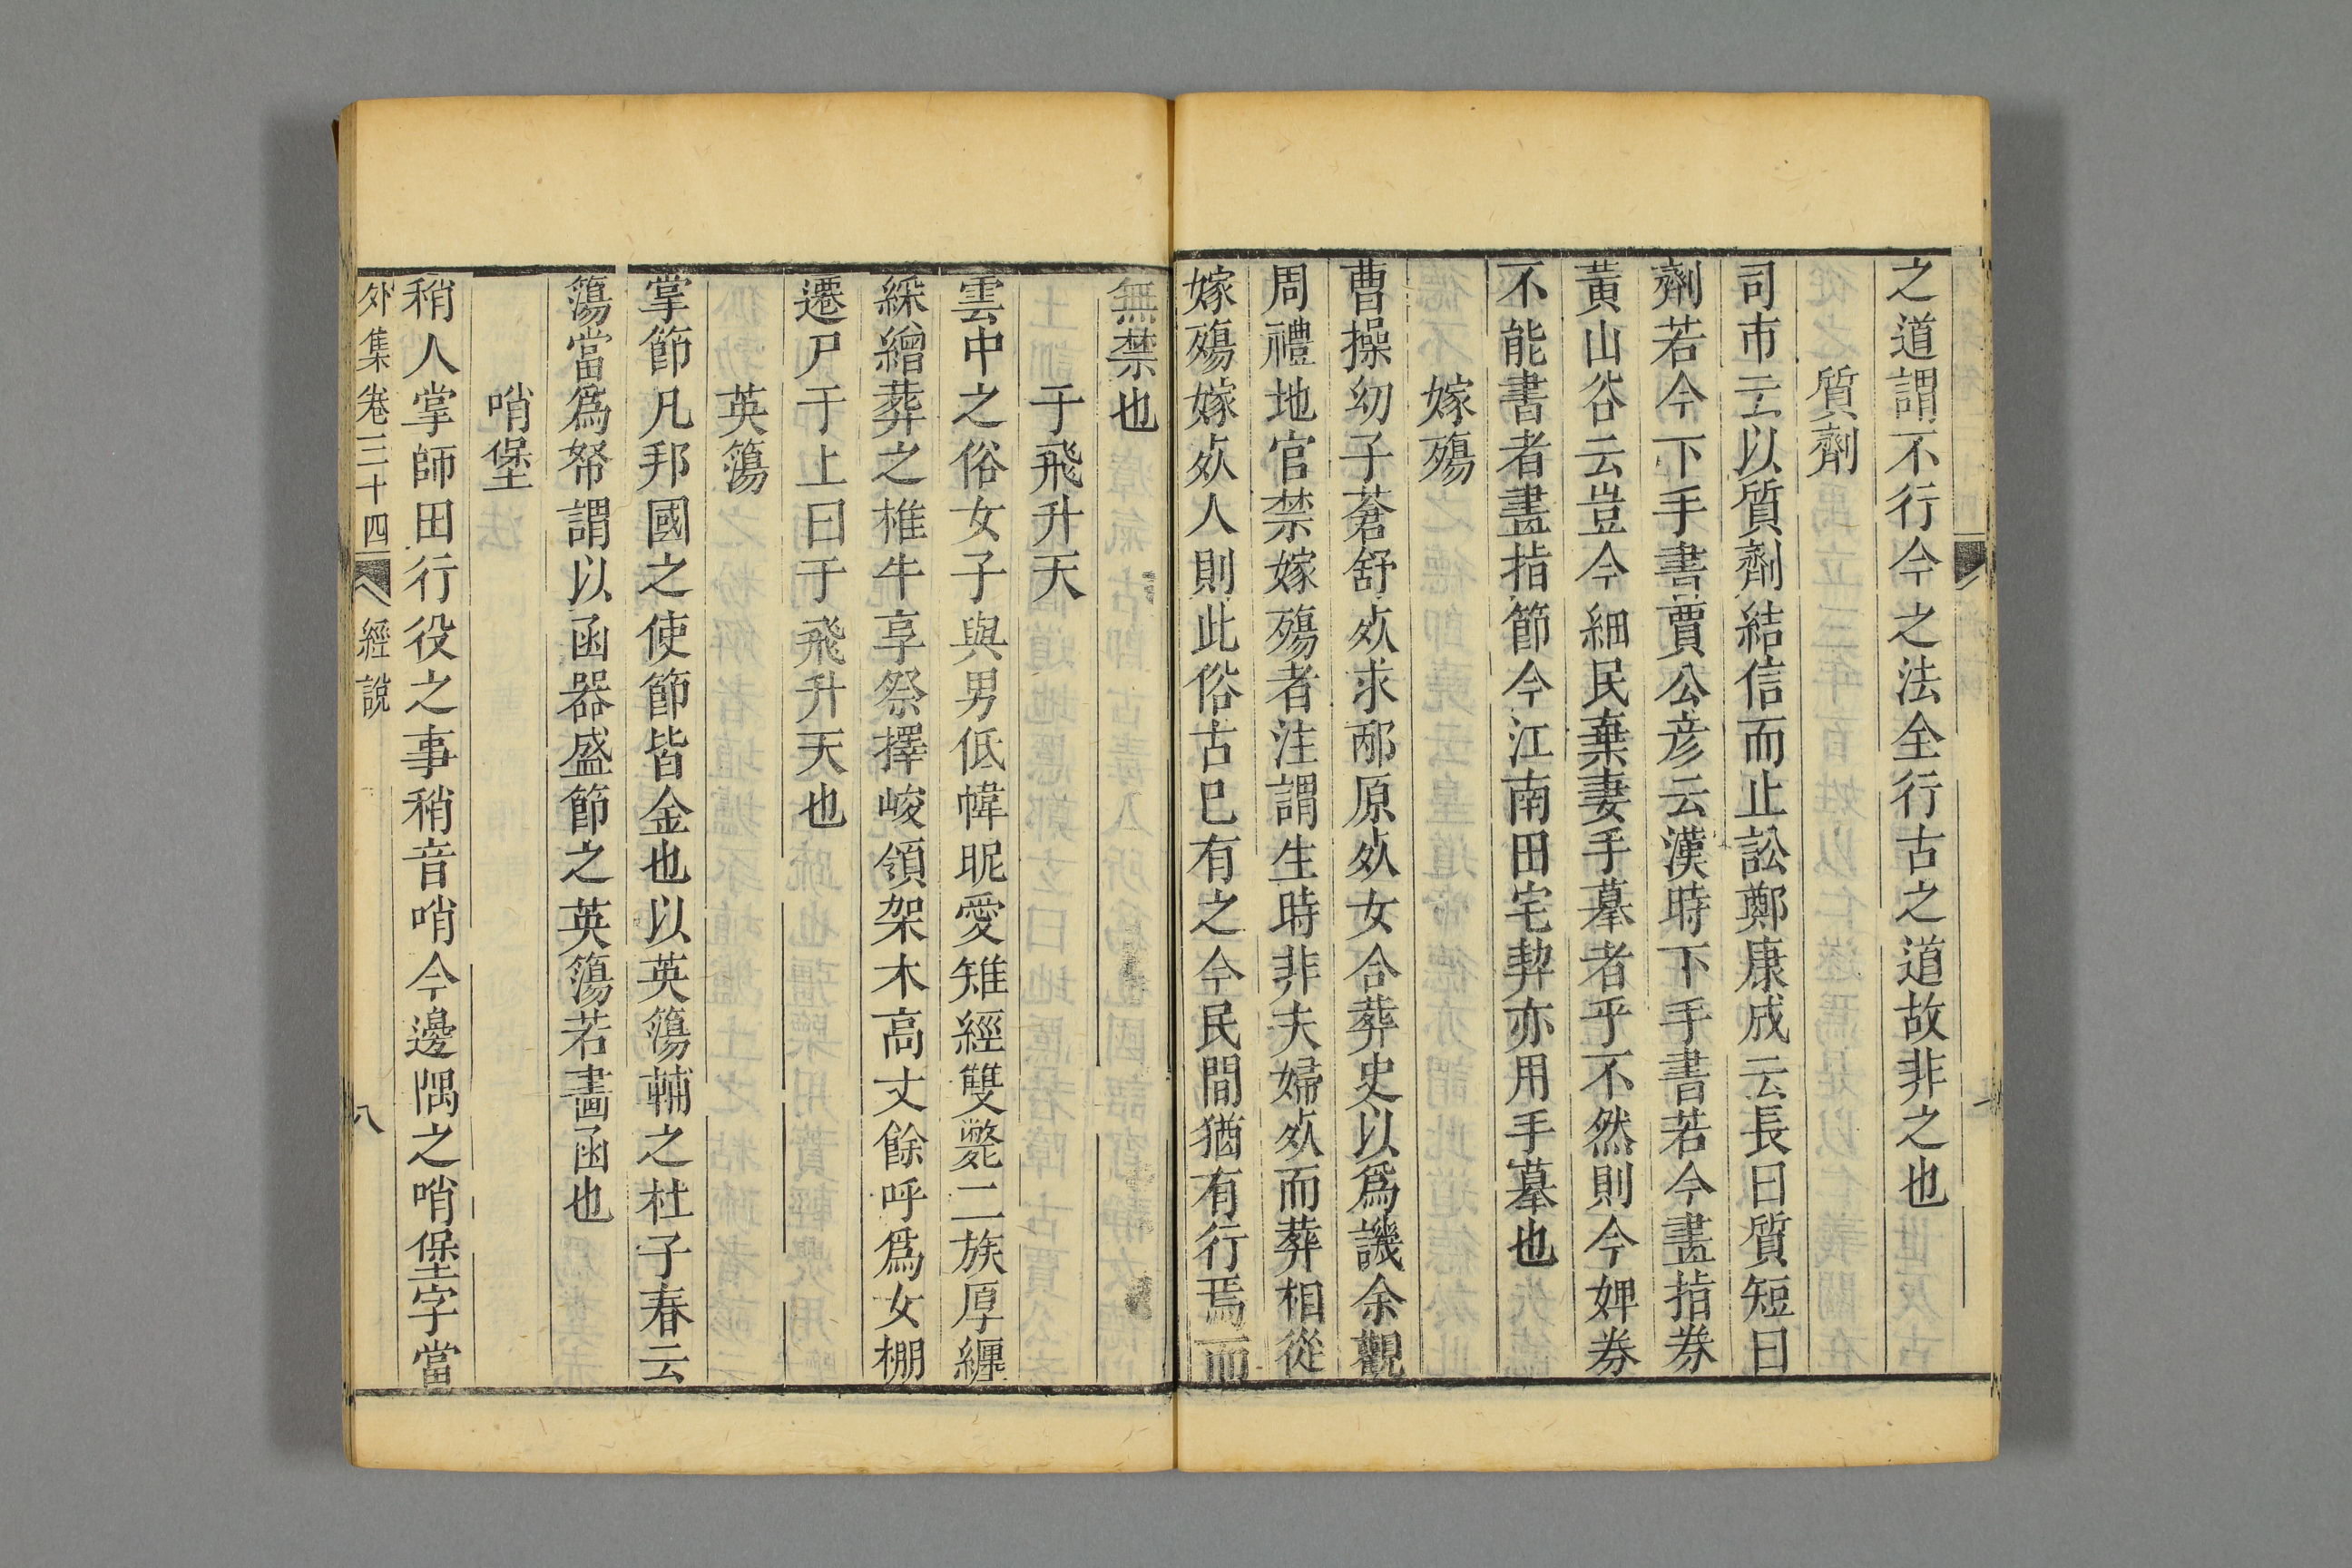 之道謂不行今之法全行古之道故非之也
質劑
司市云以質劑結信而止訟鄭康成云長曰質短曰
劑若今下手書賈公彥云漢時下手書若今畫指券
黃山谷云豈今細民棄妻手摹者乎不然則今婢券
不能書者畫指節今江南田宅契亦用手摹也
嫁殤
曹操幼子蒼舒死求邴原死女合葬史以爲譏余觀
周禮地官禁嫁殤者注謂生時非夫婦死而葬相從
嫁殤嫁死人則此俗古已有之今民間猶有行焉而
無禁也
于飛升天
雲中之俗女子與男低幃昵愛雉經雙斃二族厚纏
綵繒葬之椎牛享祭擇峻領架木高丈餘呼爲女棚
遷尸于上曰于飛升天也
英簜
掌節凡邦國之使節皆金也以英簜輔之杜子春云
簜當爲帑謂以函器盛節之英簜若畫函也
哨堡
稍人掌師田行役之事稍音哨今邊隅之哨堡字當
外集卷三十四 經說 八